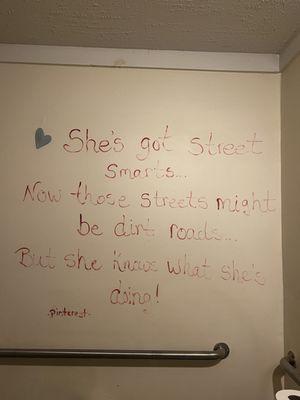 She's got street
smarts...
Now those streets might
be dirt roads...
But she knows what she's
doing!
-pinterest-